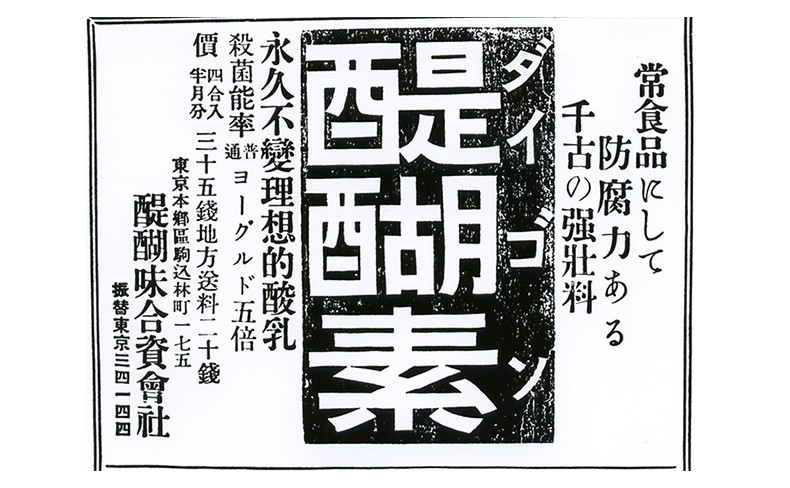 常食品にして
防腐力ある
千古の强壯料
ダイゴソ
醍醐素
永久不變理想的酸乳
殺菌能率普通ヨーグルド五倍
價四合入半月分三十五錢地方送料二十錢
東京本鄕區駒込林町一七五
醍醐味合資會社
振替東京三四一四四